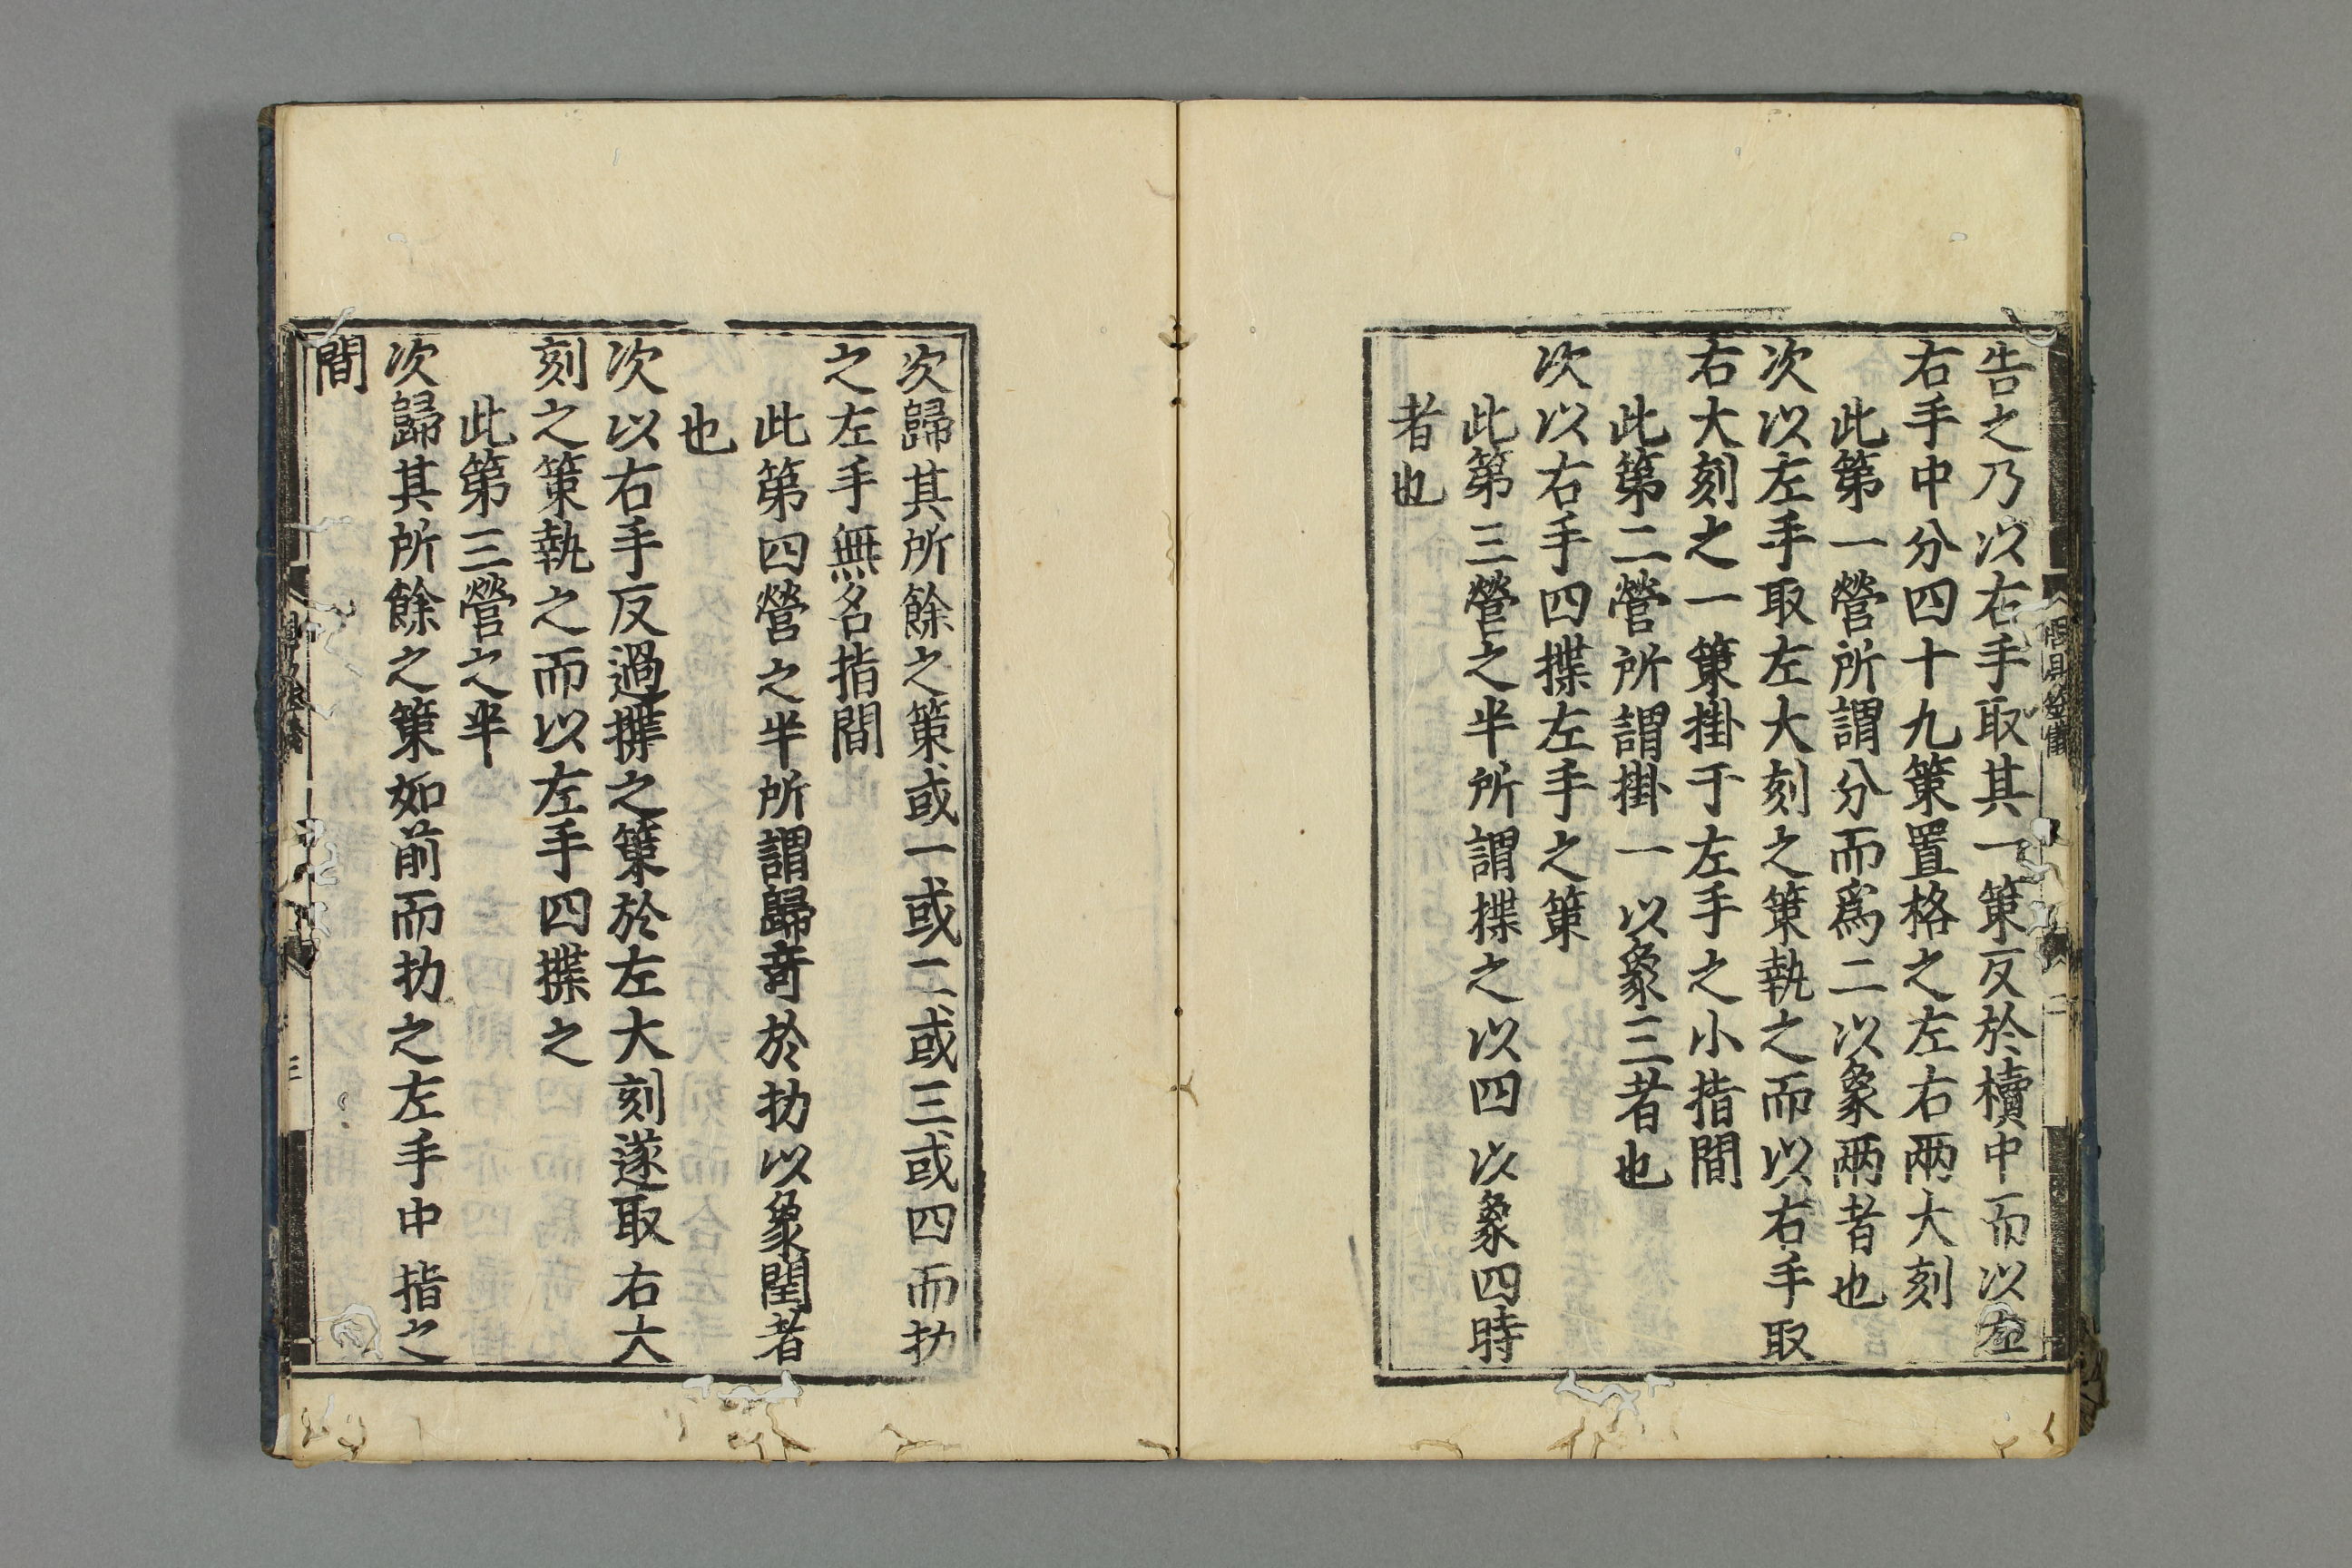 告之乃以右手取其一策反於櫝中而以左
右手中分四十九策置格之左右兩大刻
此第一營所謂分而爲二以象兩者也
次以左手取左大刻之策執之而以右手取
右大刻之一策掛于左手之小指間
此第二營所謂掛一以象三者也
次以右手四揲左手之策
此第三營之半所謂揲之以四以象四時
者也
次歸其所餘之策或一或二或三或四而扐
之左手無名指間
此第四營之半所謂歸奇於扐以象閏者
也
次以右手反過揲之策於左大刻遂取右大
刻之策執之而以左手四揲之
此第三營之半
次歸其所餘之策如前而扐之左手中指之
間
三